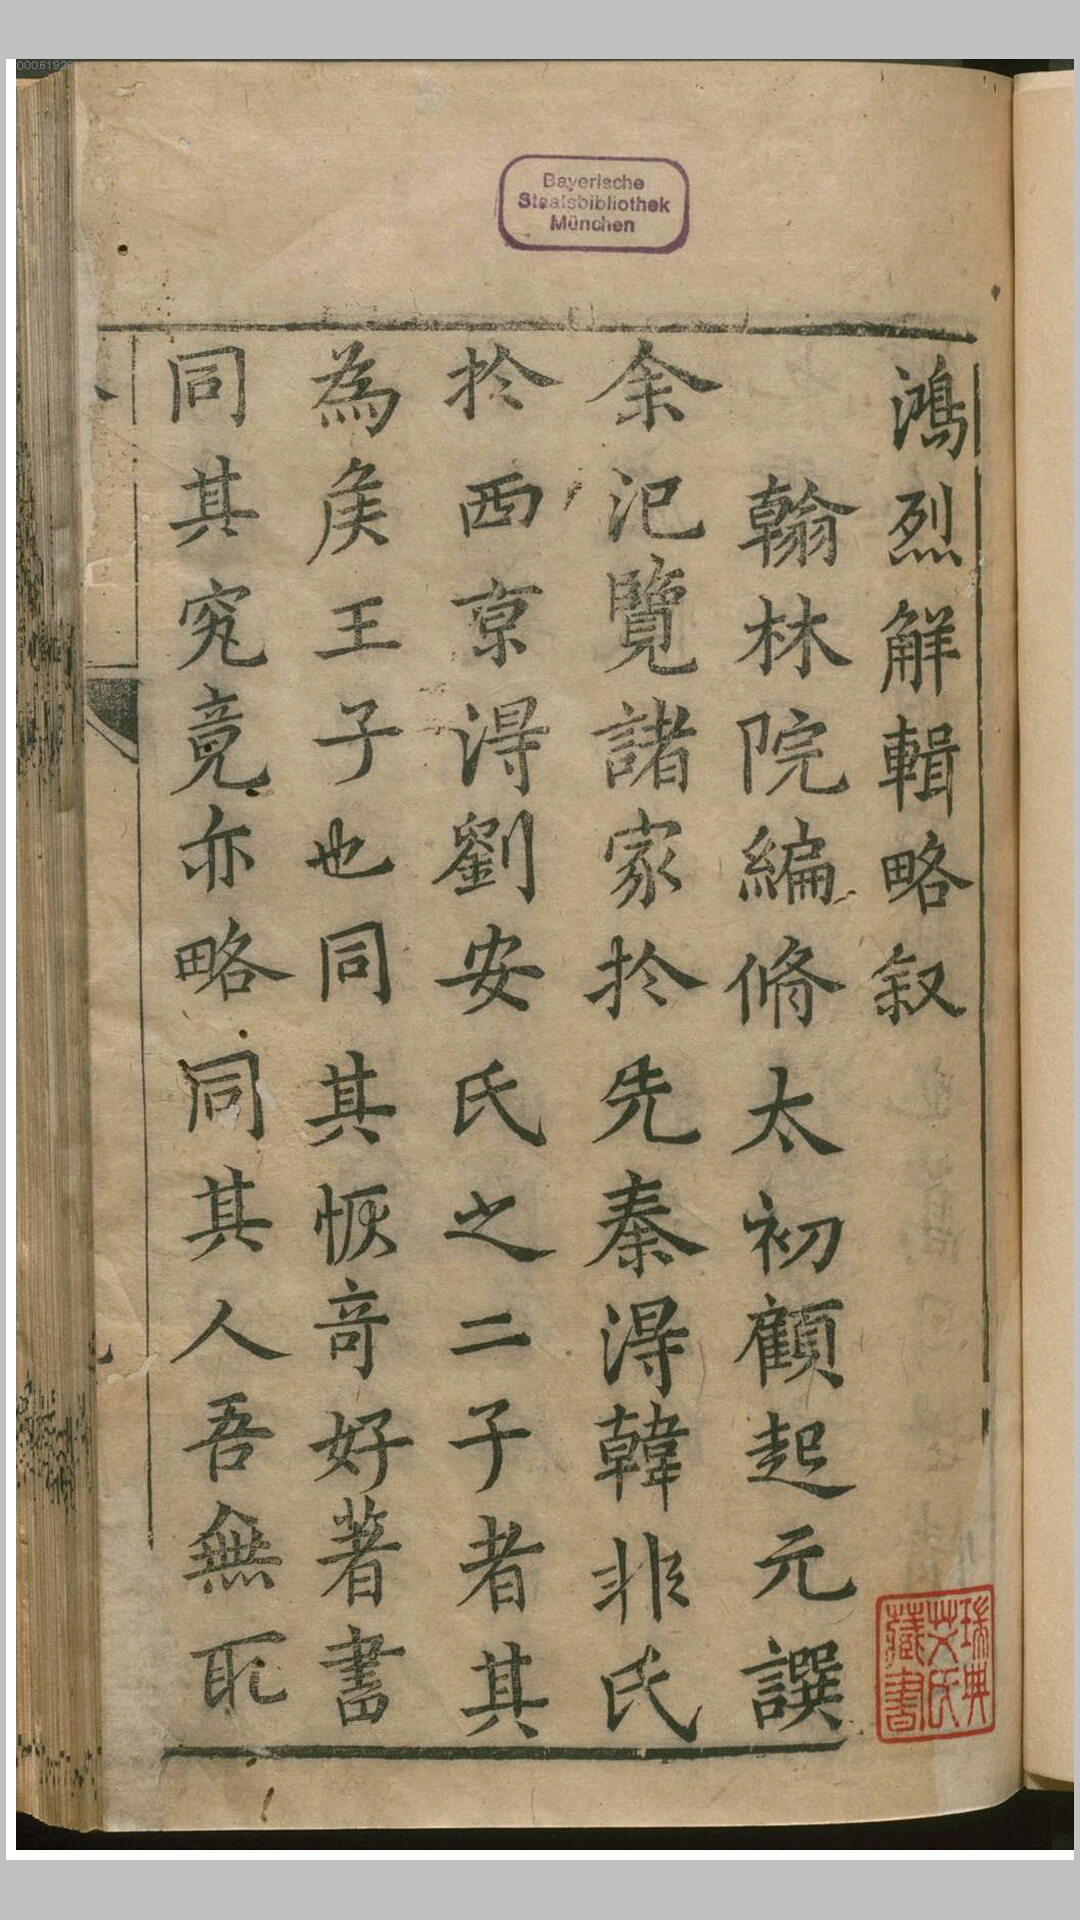 Bayerische
Staatsbibliothek
München
鴻烈解輯略叙
翰林院編脩太初顧起元譔
余汜覽諸家扵先秦淂韓非氏
扵西京淂劉安氏之二子者其
為矦王子也同其恢竒好著書
同其究竟亦略同其人吾無取
瑞典
艾氏
藏書